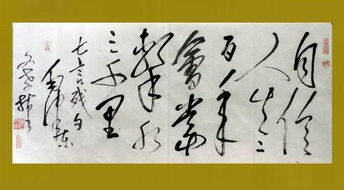 自信
人生二
百年
會當水
擊
三千里
七言戏句
毛泽东